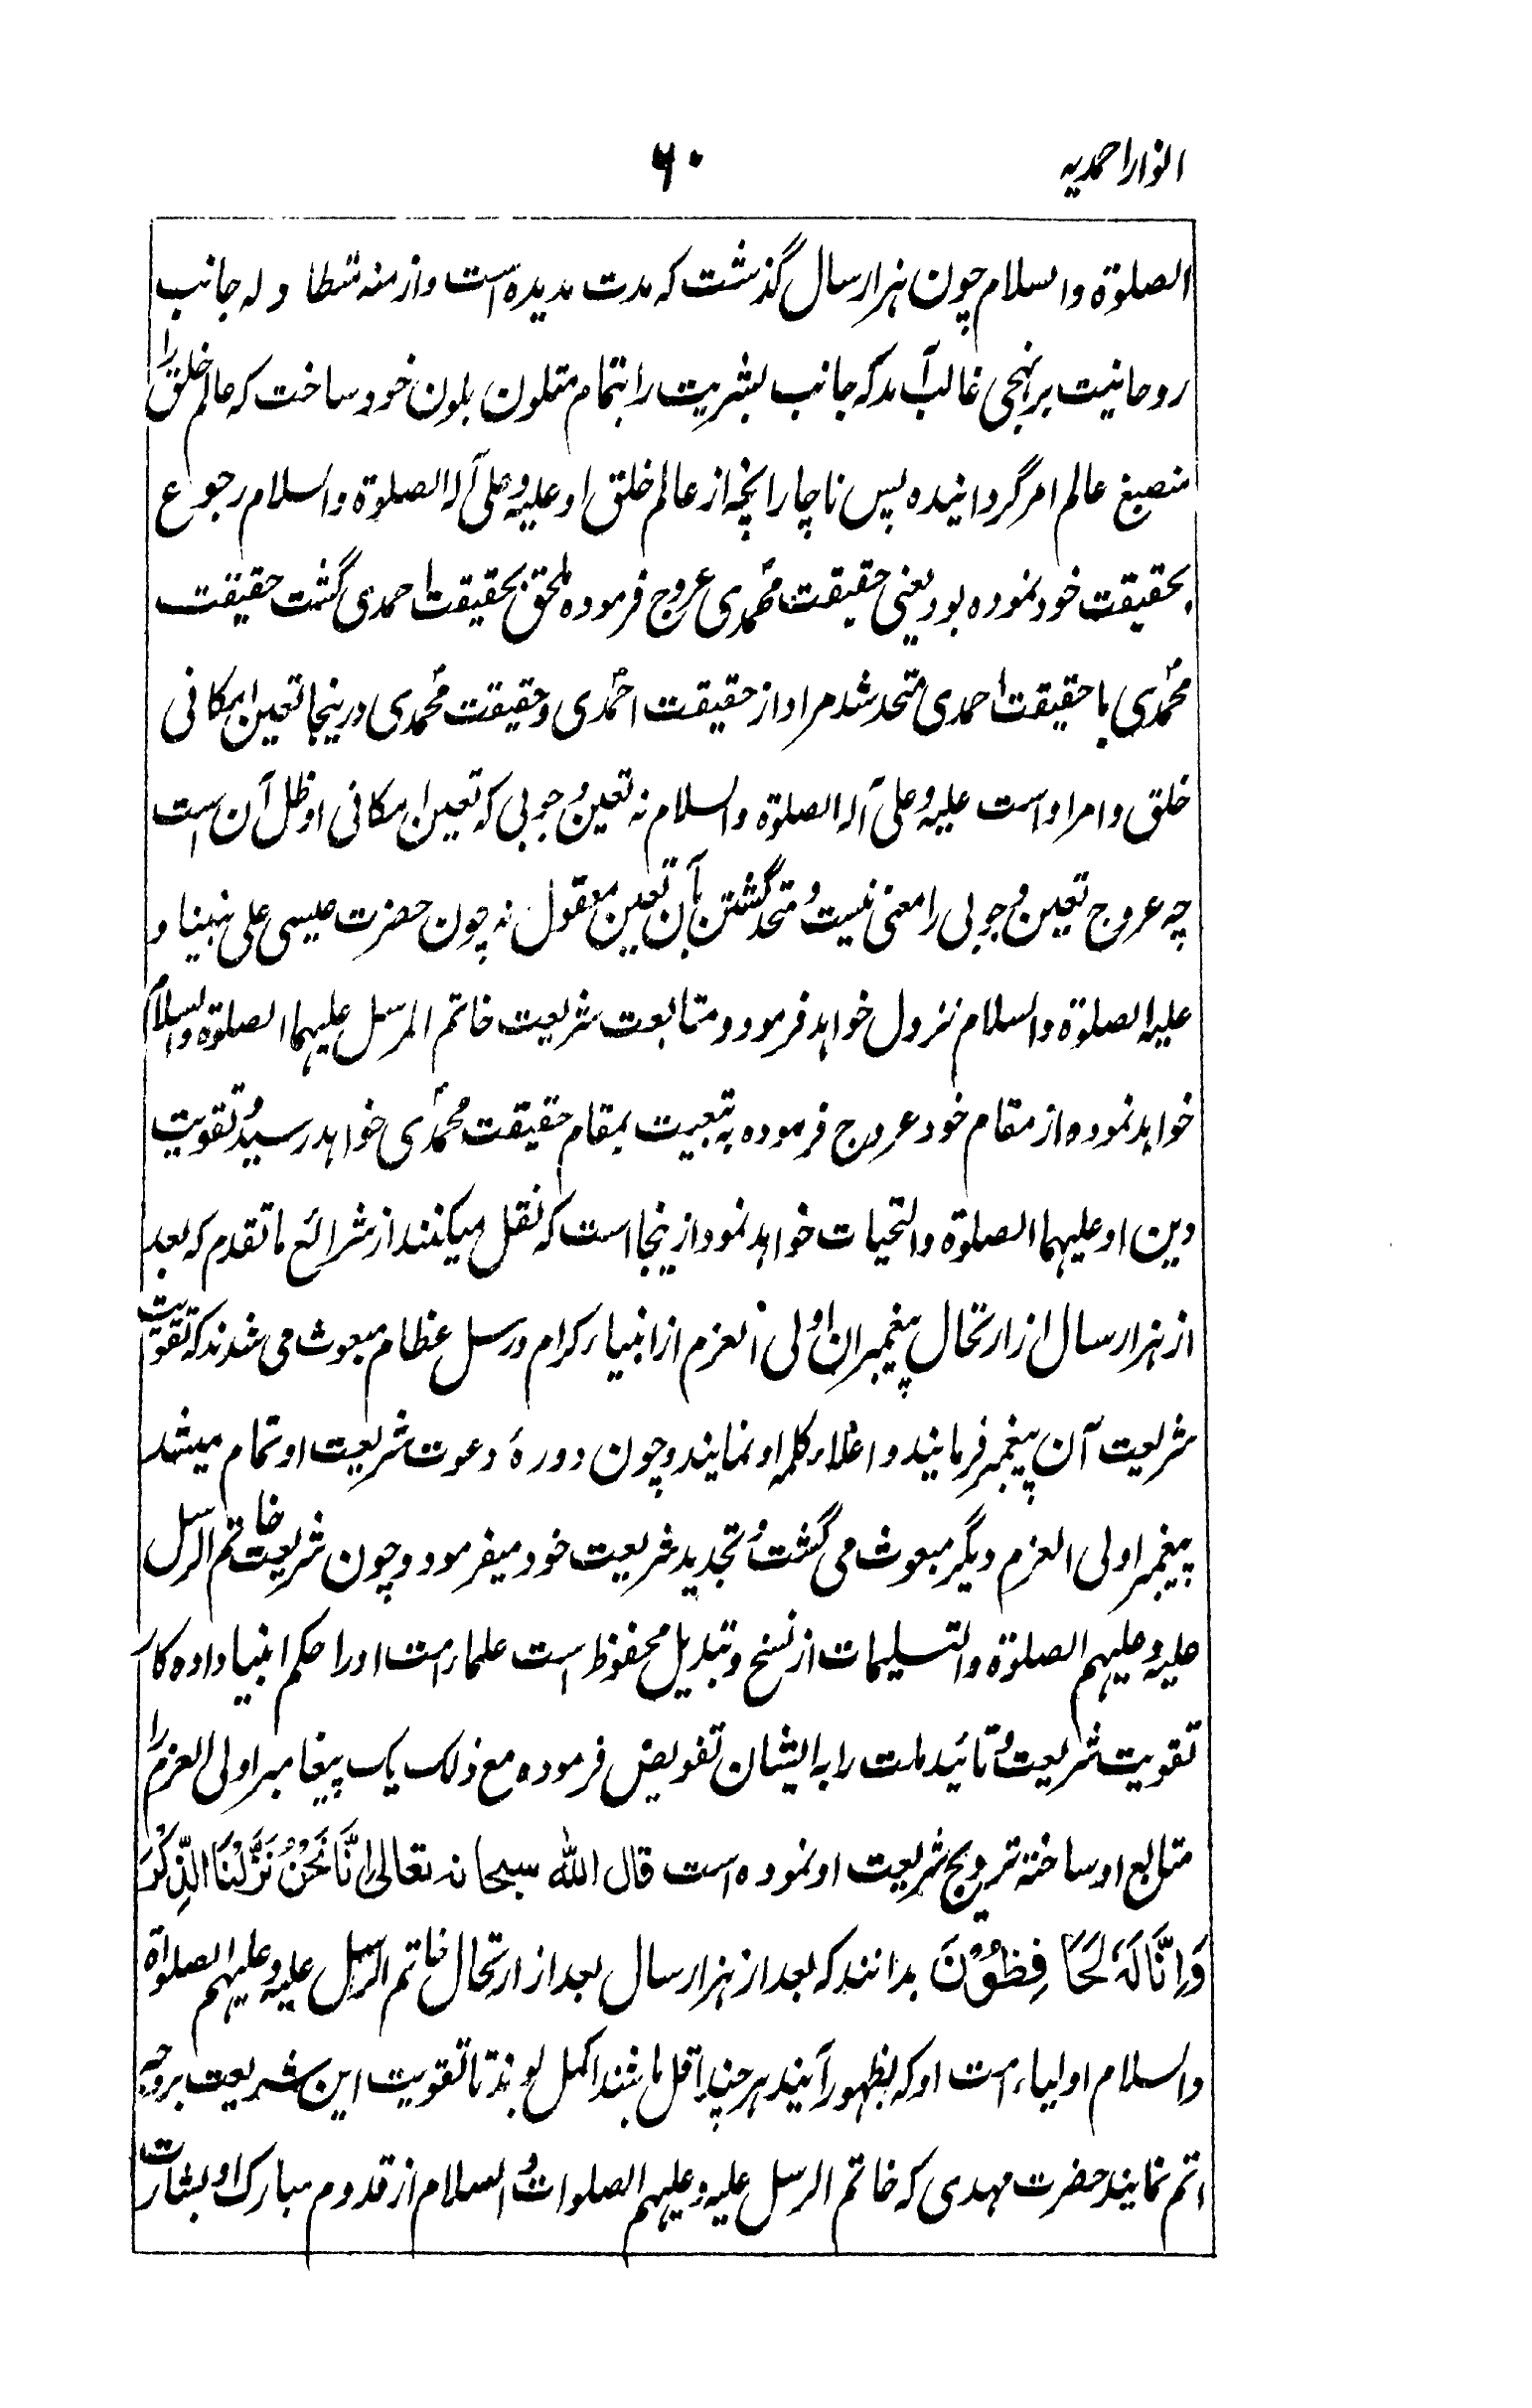 انوار احمدیہ
۶۰
الصلوة والسلام چون ہزار سال گذشت کہ مدت مدیدہ است وازمنہ متطاولہ جانب
روحانیت بر نہجی غالب آمد کہ جانب بشریت را بتمام متلون بلون خود ساخت کہ عالم خلق را
منصبغ عالم امر گردانیدہ پس ناچار انچہ از عالم خلق او علیہ وعلی آلہ الصلوة والسلام رجوع
بحقیقت خود نمودہ بود یعنی حقیقت محمدی عروج فرمودہ ملحق بحقیقت احمدی گشت حقیقت
محمدی با حقیقت احمدی متحد شد مراد از حقیقت احمدی وحقیقت محمدی درینجا تعین امکانی
خلق وامر اواست علیہ وعلی آلہ الصلوة والسلام نہ تعین وجوبی کہ تعین امکانی او ظل آن است
چہ عروج تعین وجوبی را معنی نیست ومتحد گشتن بآن تعین معقول نہ چون حضرت عیسی علی نبینا و
علیہ الصلوة والسلام نزول خواہد فرمود ومتابعت شریعت خاتم المرسل علیہما الصلوة والسلام
خواہد نمودہ از مقام خود عروج فرمودہ بہ تبعیت بمقام حقیقت محمدی خواہد رسید وتقویت
دین او علیہما الصلوة والتحیات خواہد نمود ازینجا است کہ نقل میکنند از شرائع ما تقدم کہ بعد
از ہزار سال از ارتحال پیغمبران اولی العزم از انبیاء کرام ورسل عظام مبعوث می شدند کہ تقویت
شریعت آن پیغمبر فرمایند و اعلاء کلمہ او نمایند وچون دورۂ دعوت شریعت او تمام میشد
پیغمبر اولی العزم دیگر مبعوث می گشت وتجدید شریعت خود میفرمود وچون شریعت خاتم الرسل
علیہ وعلیہم الصلوة والتسلیمات از نسخ وتبدیل محفوظ است علماء امت اورا حکم انبیا دادہ کار
تقویت شریعت وتائید ملت را بہ ایشان تفویض فرمودہ مع ذلک یک پیغامبر اولی العزم را
متابع او ساختہ ترویج شریعت او نمودہ است قال اللہ سبحانہ تعالی اِنَّا نَحْنُ نَزَّلْنَا الذِّكْرَ
وَاِنَّا لَهٗ لَحَافِظُوْنَ بدانند کہ بعد از ہزار سال بعد از ارتحال خاتم الرسل علیہ وعلیہم الصلواة
والسلام اولیاء امت او کہ بظہور آیند ہر چند اقل باشند اکمل بوند تا تقویت این شریعت بروجہ
اتم نمایند حضرت مہدی کہ خاتم الرسل علیہ وعلیہم الصلوات والسلام از قدوم مبارک او بشارت